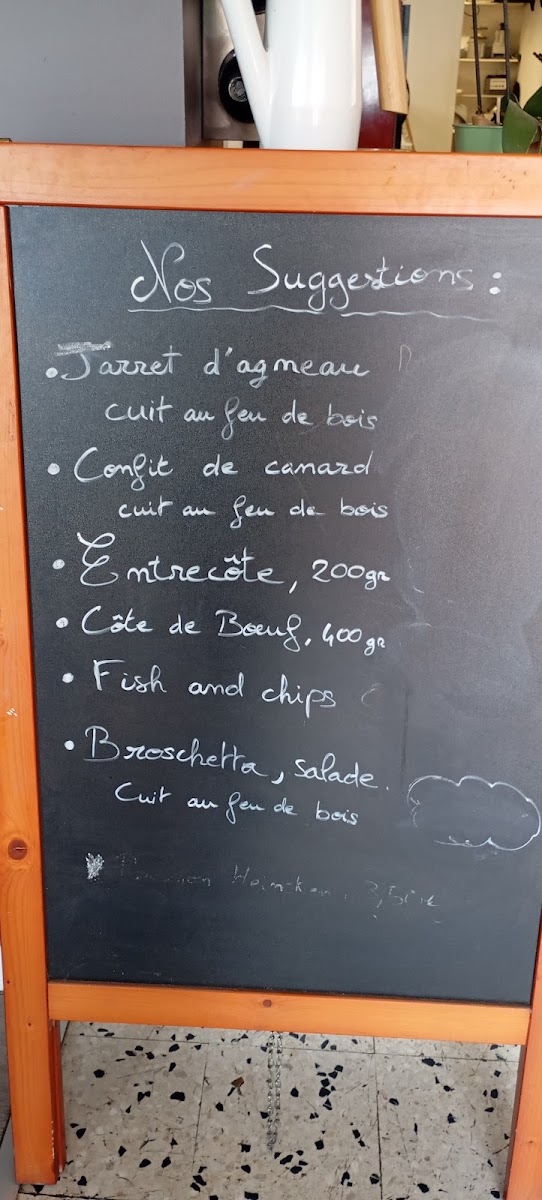 Nos Suggestions :
• Jarret d'agneau
cuit au feu de bois
• Confit de canard
cuit au feu de bois
• Entrecôte, 200gr
• Côte de Bœuf, 400gr
• Fish and chips
• Broschetta, salade.
Cuit au feu de bois